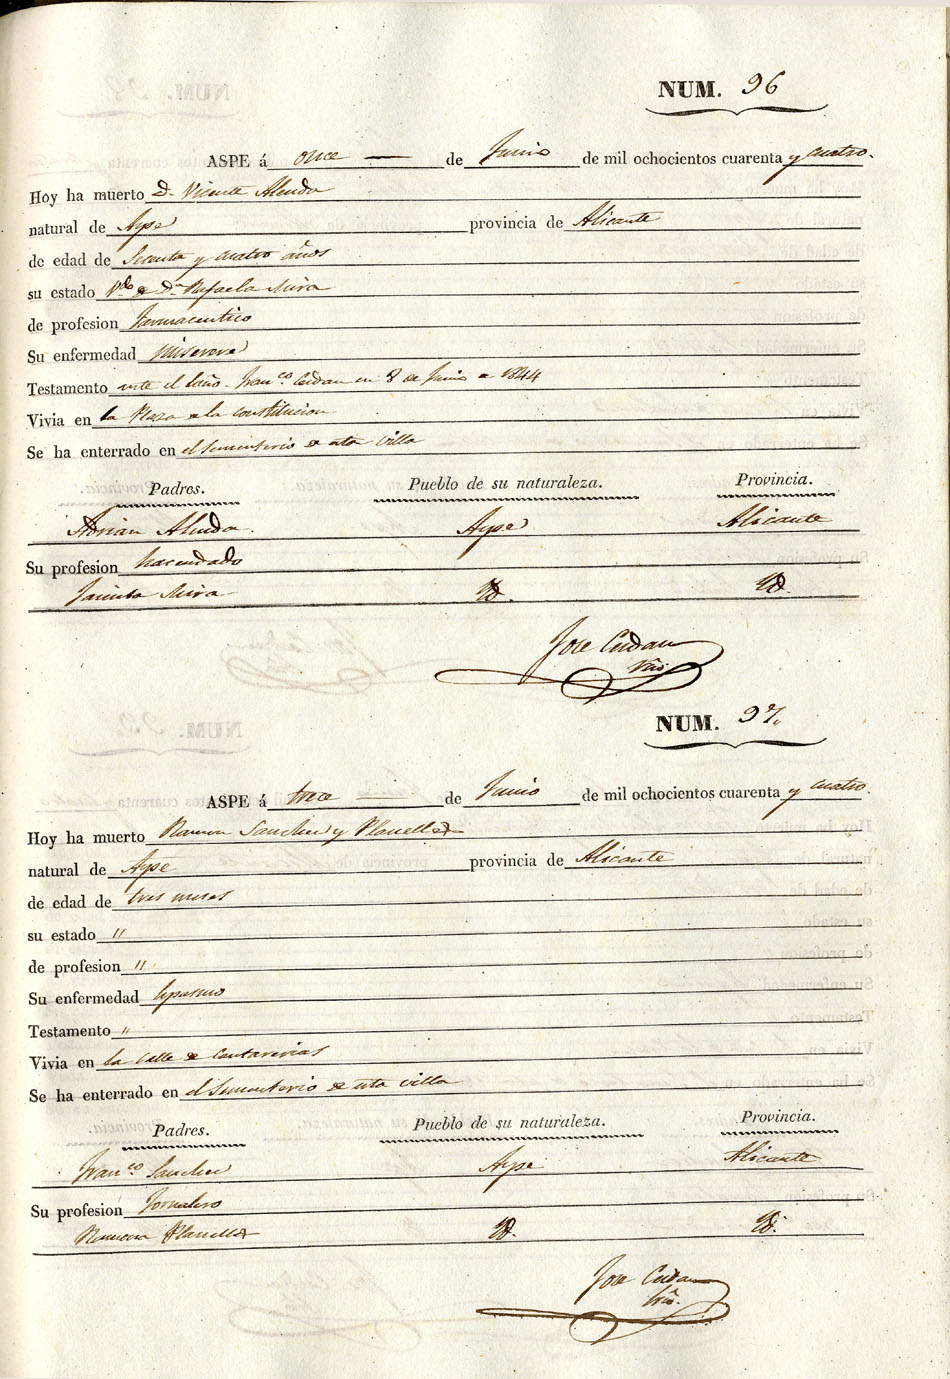 NUM. 96
ASPE á once — de Junio de mil ochocientos cuarenta y cuatro.
Hoy ha muerto D. Vicente Alenda
natural de Aspe provincia de Alicante
de edad de Sesenta y cuatro años
su estado Vdo de Dª Rafaela Mira
de profesion farmaceutico
Su enfermedad miserere
Testamento ante el Franco. Cerdan en 8 de Junio de 1844
Vivia en la Plaza de la constitucion
Se ha enterrado en el Sementerio de esta villa
Padres. Pueblo de su naturaleza. Provincia.
Adrian Alenda. Aspe Alicante
Su profesion hacendado
Jacinta Mira Yd. Yd.
Jose Cerdan
Srio.
NUM. 97.
ASPE á trece — de Junio de mil ochocientos cuarenta y cuatro.
Hoy ha muerto Ramon Sanchez y Planelles
natural de Aspe provincia de Alicante
de edad de tres meses
su estado "
de profesion "
Su enfermedad Espasmo
Testamento "
Vivia en la Calle de Cantarerias
Se ha enterrado en el Sementerio de esta villa
Padres. Pueblo de su naturaleza. Provincia.
Franco. Sanchez Aspe Alicante
Su profesion Jornalero
Ramona Planelles Yd. Yd.
Jose Cerdan
Srio.